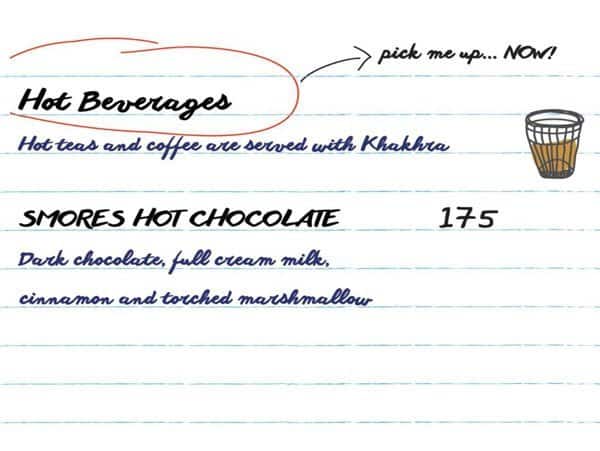 pick me up... NOW!
Hot Beverages
Hot teas and coffee are served with Khakhra
SMORES HOT CHOCOLATE 175
Dark chocolate, full cream milk,
cinnamon and torched marshmallow